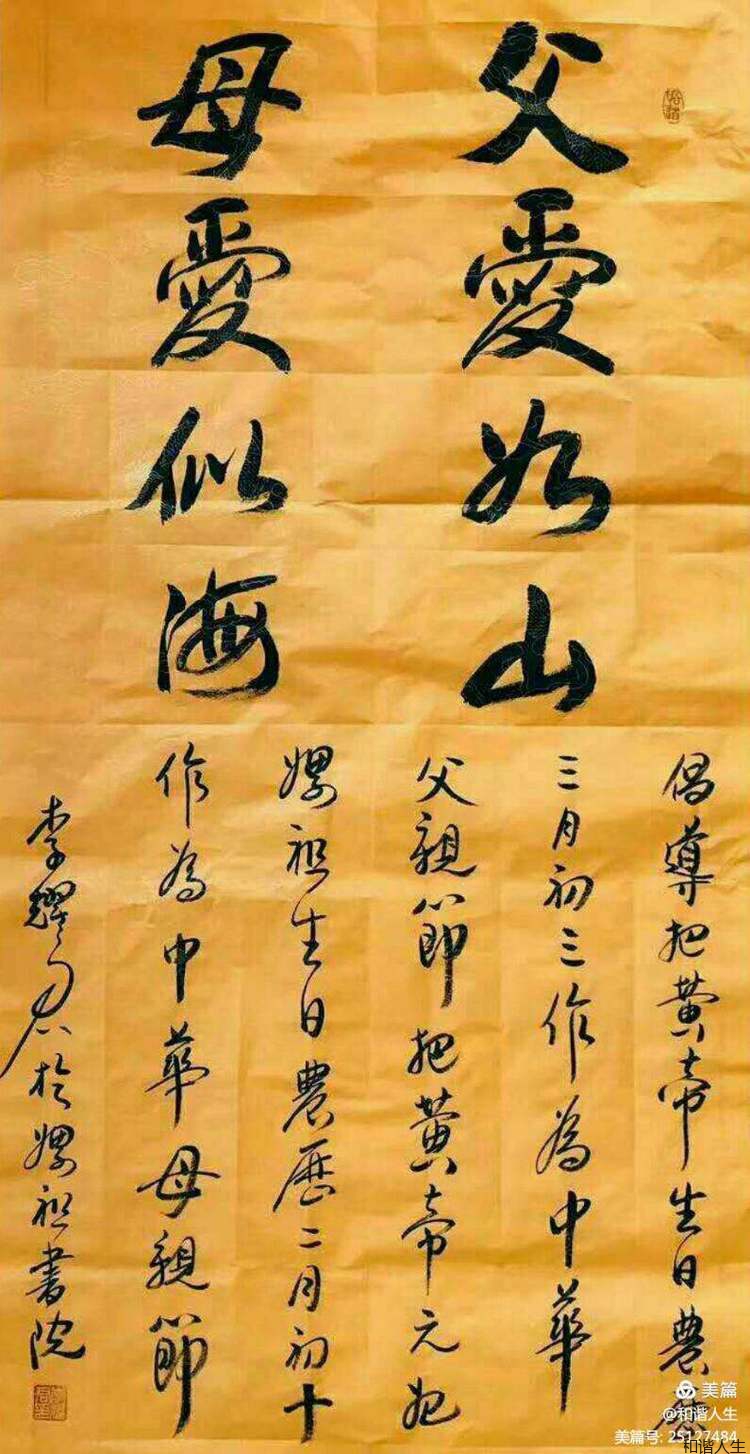 父愛如山
母愛似海
倡導把黄帝生日農歷
三月初三作為中華
父親節把黄帝元妃
嫘祖生日農歷二月初十
作為中華母親節
李耀君於嫘祖書院
美篇
@和谐人生
美篇号: 25127484
和谐人生